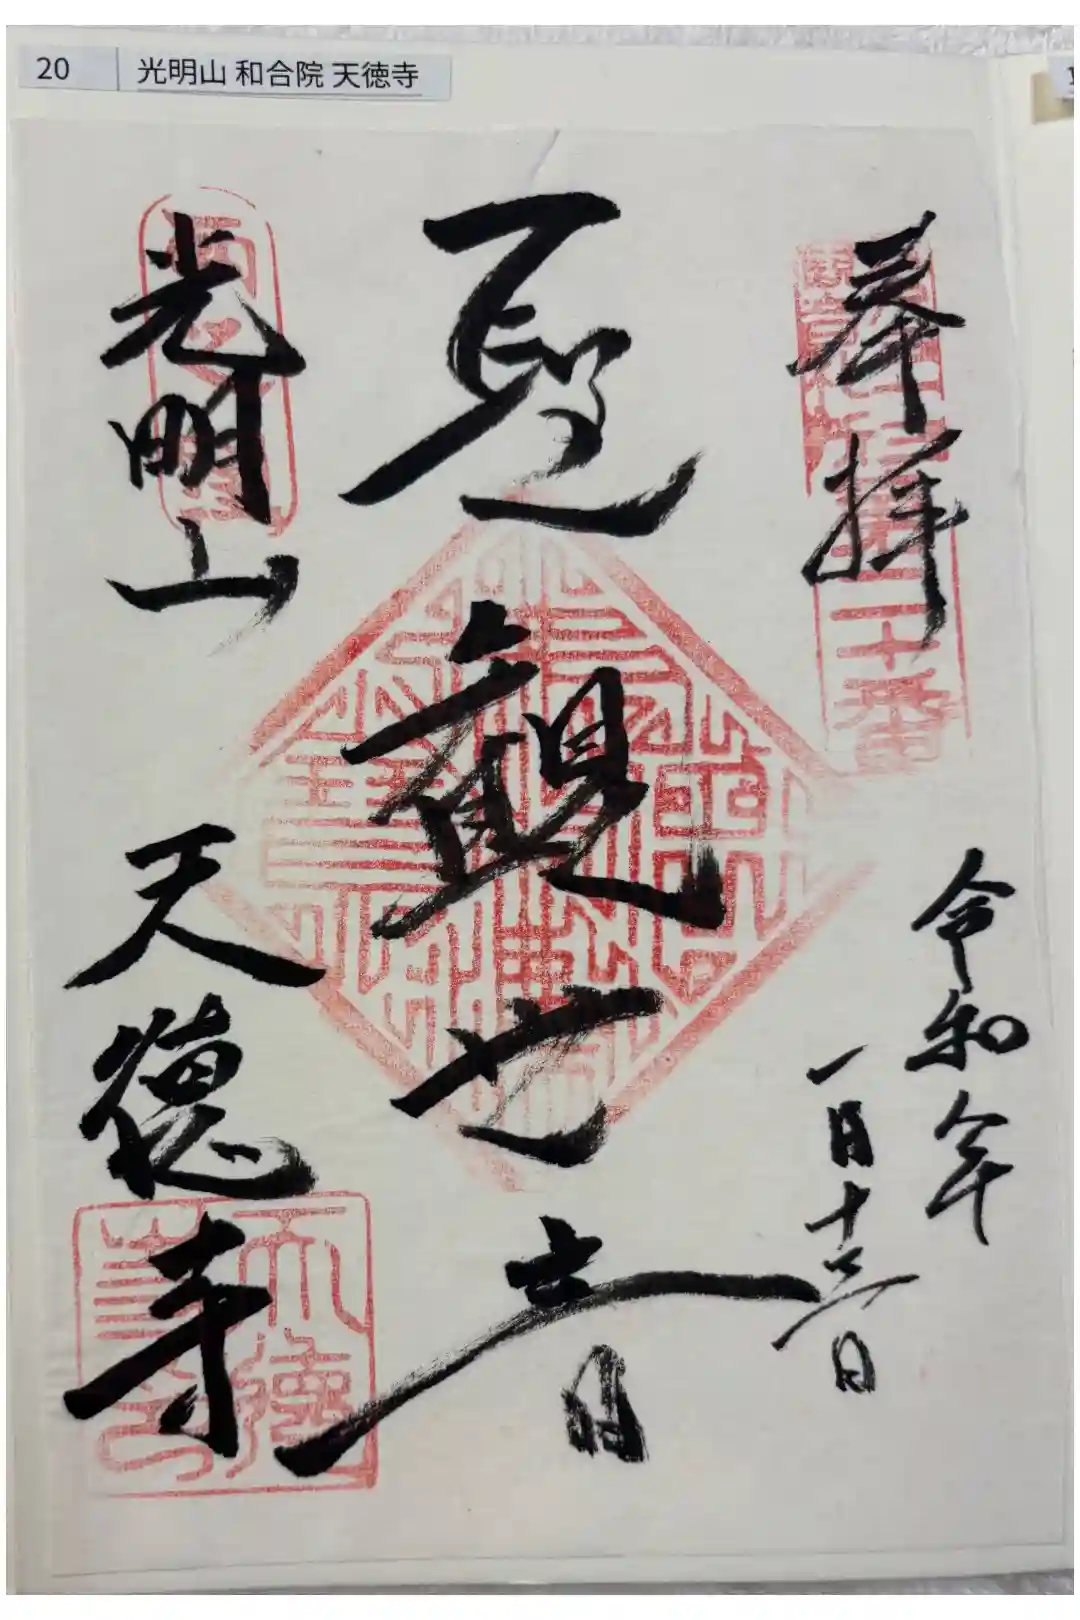 20 光明山 和合院 天徳寺
奉拝
令和年
一月十三日
聖觀世音
光明山
天徳寺
二十番